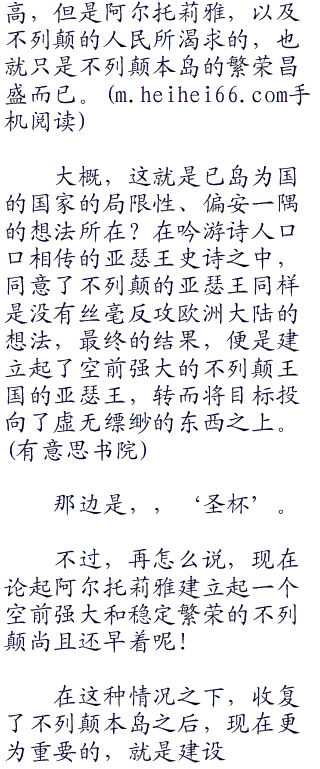 高，但是阿尔托莉雅，以及
不列颠的人民所渴求的，也
就只是不列颠本岛的繁荣昌
盛而已。(m.heihei66.com手
机阅读)
大概，这就是已岛为国
的国家的局限性、偏安一隅
的想法所在？在吟游诗人口
口相传的亚瑟王史诗之中，
同意了不列颠的亚瑟王同样
是没有丝毫反攻欧洲大陆的
想法，最终的结果，便是建
立起了空前强大的不列颠王
国的亚瑟王，转而将目标投
向了虚无缥缈的东西之上。
(有意思书院)
那边是，，‘圣杯’。
不过，再怎么说，现在
论起阿尔托莉雅建立起一个
空前强大和稳定繁荣的不列
颠尚且还早着呢！
在这种情况之下，收复
了不列颠本岛之后，现在更
为重要的，就是建设